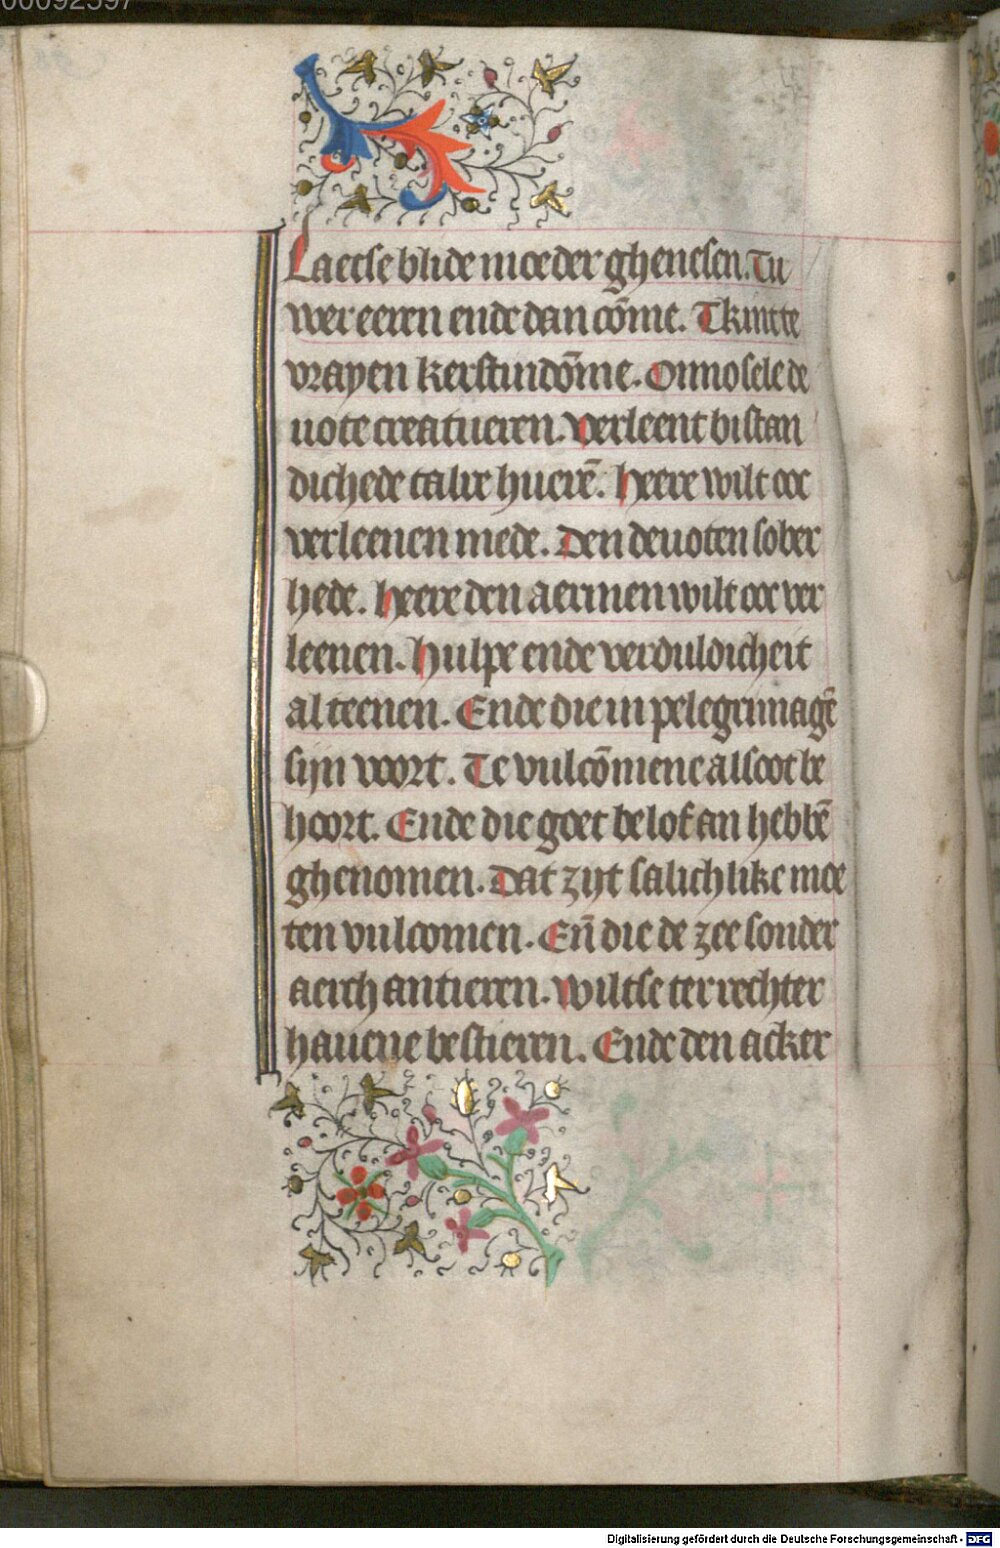 00092597
Laetse blide moeder ghenesen. Tu
wer eeren ende dan cōme. Tkintte
vrayen kerstindōme. Onnosele de
uote creatueren. Verleent bistan
dichede talre huerē. Heere wilt ooc
verleenen mede. Den deuoten sober
hede. Heere den aermen wilt ooc ver
leenen. Hulpe ende verduldicheit
al teenen. Ende die in pelegrimagē
sijn voort. Te vulcōmene alsoot be
hoort. Ende die goet belof an hebbē
ghenomen. Dat zijt salichlike moe
ten vulcomen. Eñ die de zee sonder
aerch antieren. Wiltse ter rechter
hauene bestieren. Ende den acker
Digitalisierung gefördert durch die Deutsche Forschungsgemeinschaft - DFG